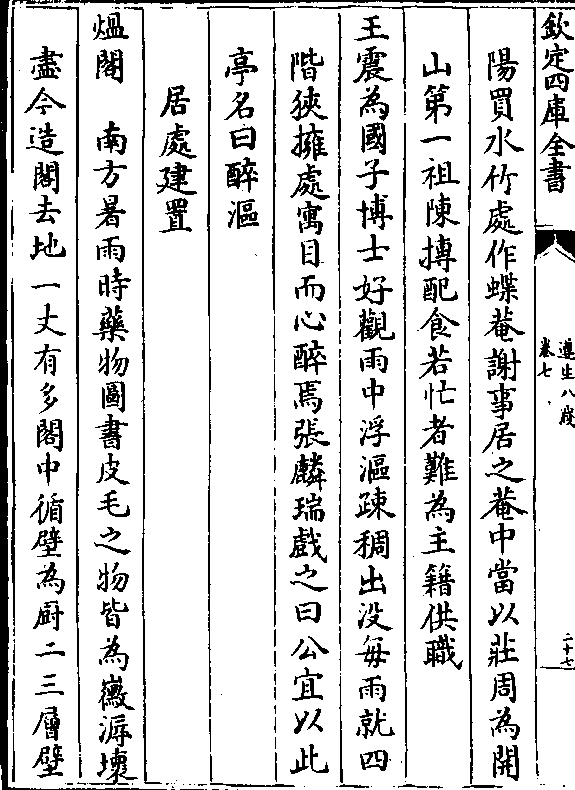 欽定四庫全書
遵生八牋
卷七
二十七
陽買水竹處作蝶菴謝事居之菴中當以莊周為開
山第一祖陳摶配食若忙者難為主籍供職
王震為國子博士好觀雨中浮漚疎稠出没每雨就四
階狹擁處寓目而心醉焉張麟瑞戲之曰公宜以此
亭名曰醉漚
居處建置
熅閣　南方暑雨時藥物圖書皮毛之物皆為黴溽壞
盡今造閣去地一丈有多閣中循壁為厨二三層壁